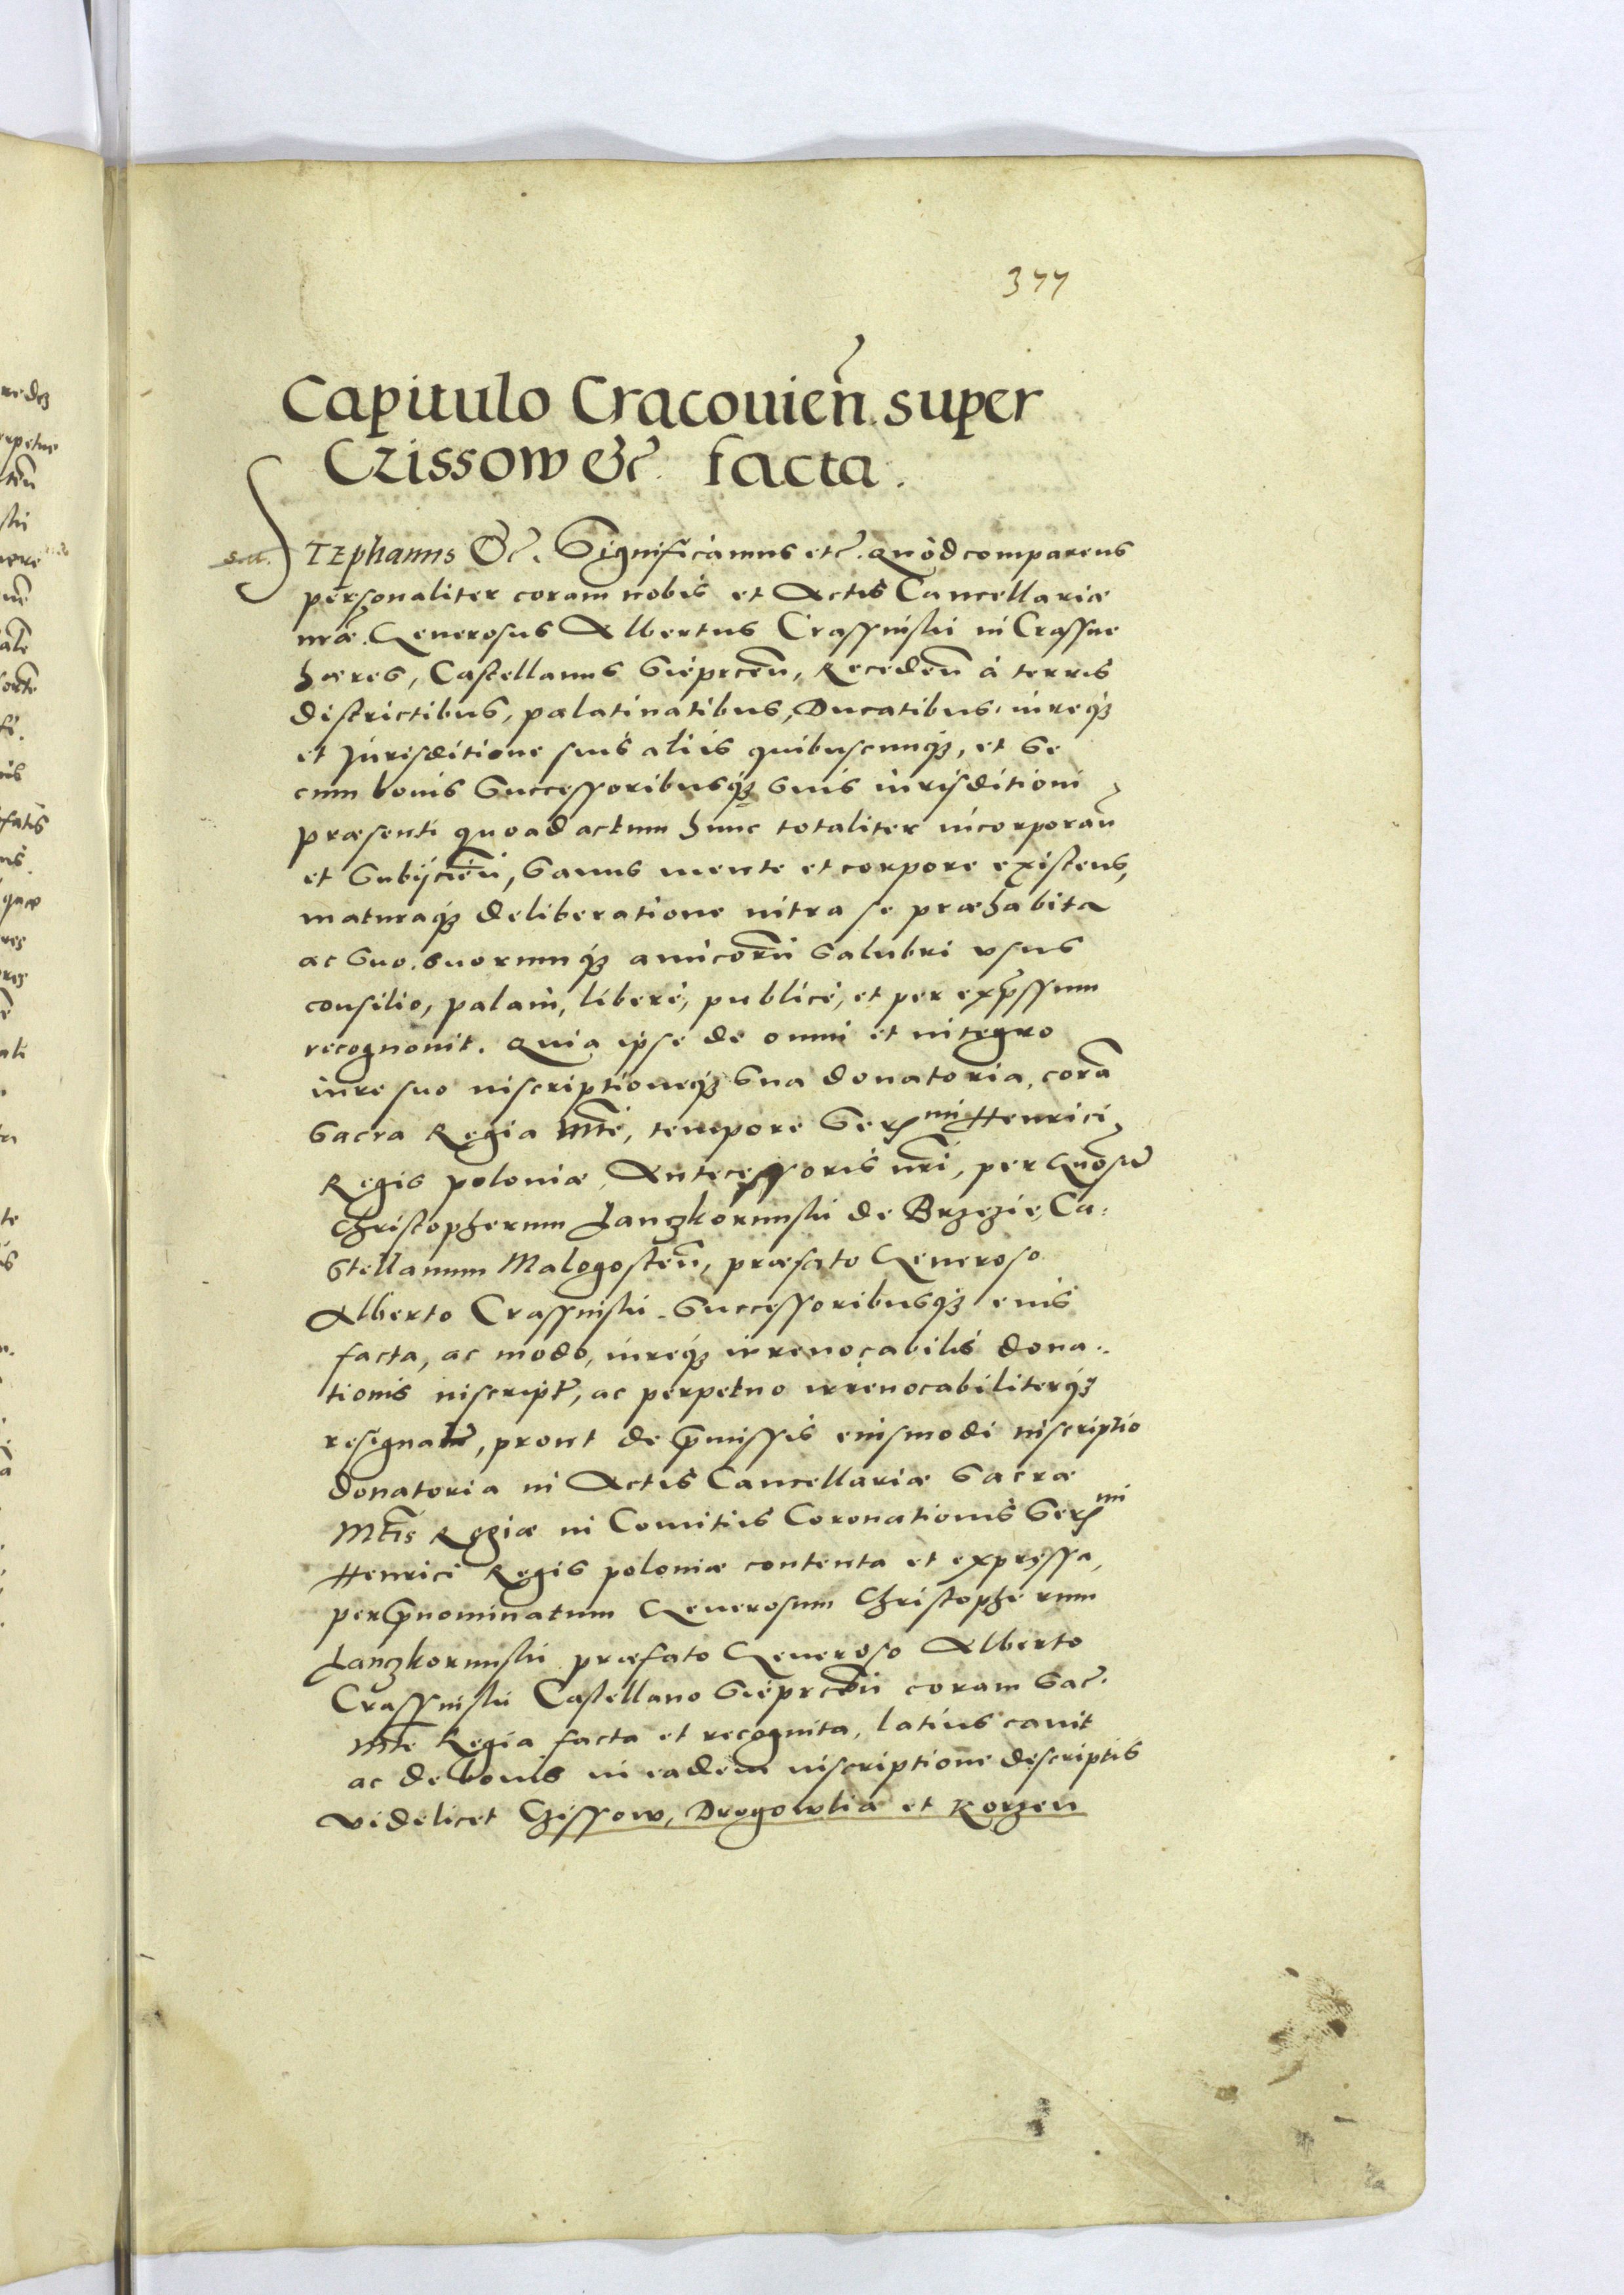 377
Capitulo Cracouien̄. super
Czissow &c. facta.
STEphanus &c. Significamus etc. Quòd comparens
personaliter coram nobis et Actis Cancellariæ
nr̄æ. Generosus Albertus Crassinskii in Crassne
hæres, Castellanus Siepreen̄, Receden̄ à terris
districtibus, palatinatibus, Ducatibus, iureq;
et Jurisditione suis aliis quibuscunq;, et se
cum bonis Successoribusq; suis iurisditioni
præsenti quoad actum hunc totaliter incorporan̄
et Subijcien̄, Sanus mente et corpore existens,
maturaq; deliberatione intra se præhabita
ac suo. suorumq; amicorū Salubri vsus
consilio, palam, liberè, publicè, et per exp̄ssum
recognouit. Quia ipse de omni et integro
iure suo inscriptioneq; Sua donatoria, corā
Sacra Regia Mtē, tempore Serᵐⁱ Henrici
Regis poloniæ, Antecessoris nr̄i, per Gn̄osū
Christopherum Lanczkorunskii de Brzezie, Ca:
Stellanum Malogosten̄, præfato Generoso
Alberto Crassinskii Successoribusq; eius
facta, ac modo, iureq; irreuocabilis dona..
tionis inscript̄, ac perpetuo irreuocabiliterq;
resignat̄, prout de p̄missis eiusmodi inscriptio
donatoria in Actis Cancellariæ Sacræ
Mt̄is Regiæ in Comitiis Coronationis Serᵐⁱ
Henrici Regis poloniæ contenta et expressa,
per p̄nominatum Generosum Christopherum
Lanczkorunskii præfato Generoso Alberto
Crassinskii Castellano Siepreen̄ coram Sac.
Mtē Regia facta et recognita, latius canit
ac de bonis in eadem inscriptione descriptis
videlicet Czissow, Drogowliæ et Korzen